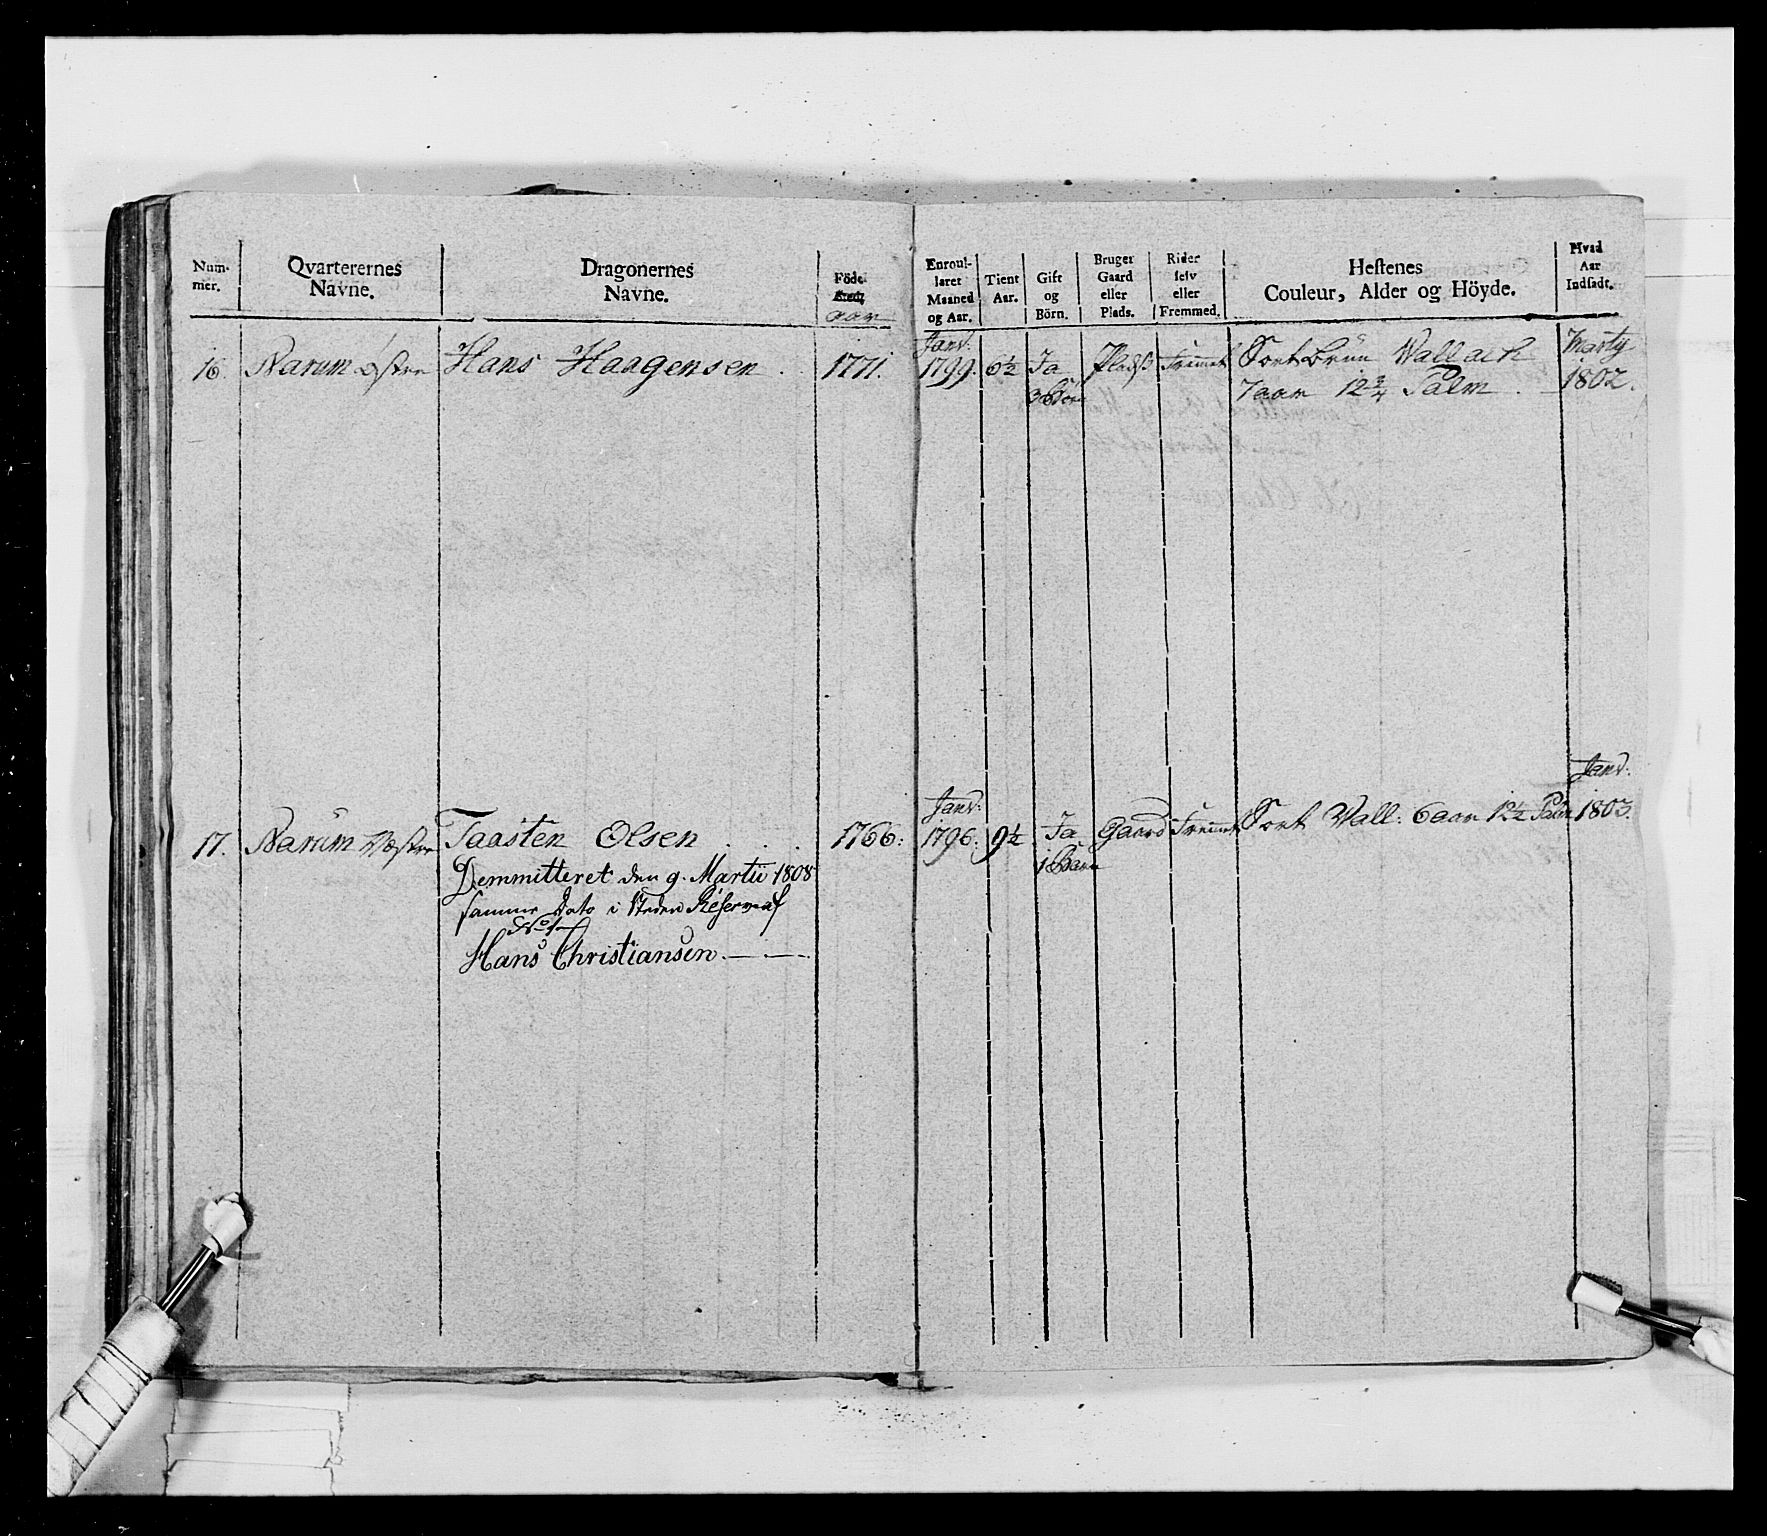 Num-
mer.
Qvarterernes
Navne.
Dragonernes
Navne.
Föde
aar
Enroul-
leret
Maaned
og Aar.
Tient
Aar.
Gift
og
Börn.
Bruger
Gaard
eller
Plads.
Rider
selv
eller
Fremmed.
Hestenes
Couleur, Alder og Höyde.
Hvad
Aar
Indsadt.
16. Narum Østre Hans Haagensen. 1771. Janv: 1799. 6½ Ja Pladss Fremet Sortbrun Wallack Marty
3 Børn 7 aar 12¾ Palm. 1802.
17. Narum Væstre Taasten Olsen 1766. Janv: 1796. 9½ Ja Gaard Fremet Sort Wall: 6 aar 12½ Palm Janv: 1803.
1 Barn
Demmitteret den 9. Martii 1808
samme Dato i Steden Reserve af
Hans Christiansen